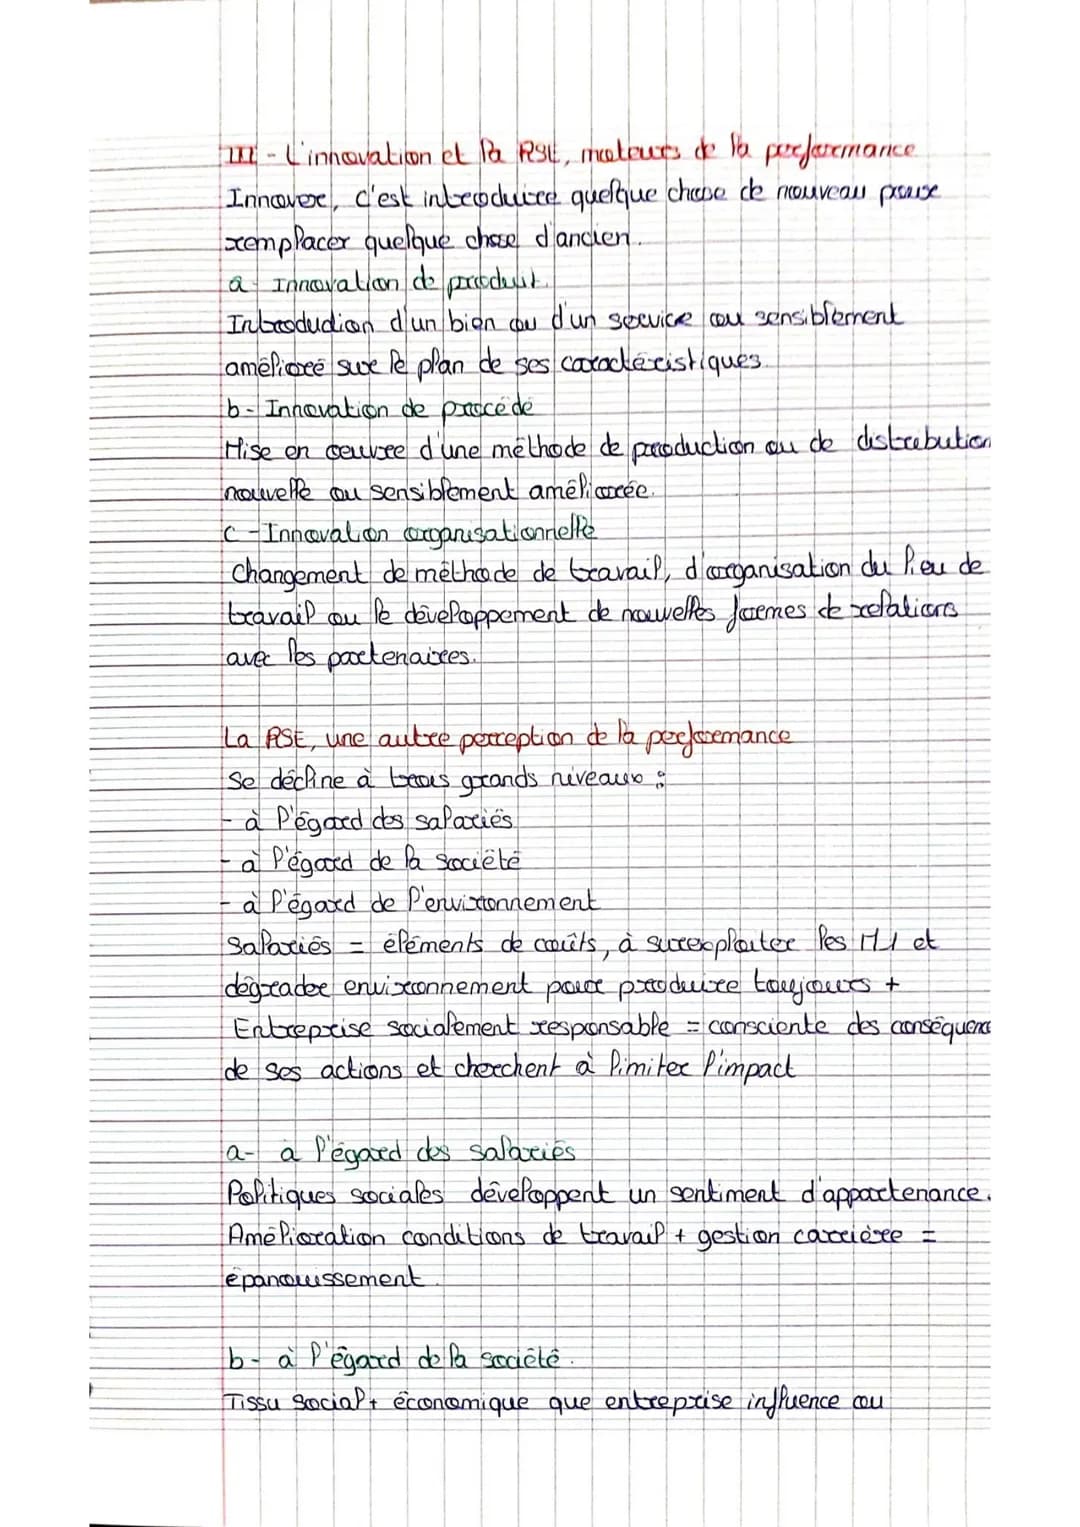 III - L'innovation et la RSE, moteurs de la performance
Innover, c'est introduire quelque chose de nouveau pour
remplacer quelque chose d'ancien.
a - Innovation de produit.
Introduction d'un bien ou d'un service ou sensiblement
amélioré sur le plan de ses caractéristiques.
b - Innovation de procédé
Mise en oeuvre d'une méthode de production ou de distribution
nouvelle ou sensiblement améliorée.
c - Innovation organisationnelle
Changement de méthode de travail, d'organisation du lieu de
travail ou le développement de nouvelles formes de relations
avec les partenaires.
La RSE, une autre perception de la performance
Se décline à trois grands niveaux :
- à l'égard des salariés
- à l'égard de la société
- à l'égard de l'environnement
Salariés = éléments de coûts, à surexploiter les M1 et
dégrader environnement pour produire toujours +
Entreprise socialement responsable = consciente des conséquenc
de ses actions et cherchent à limiter l'impact
a- à l'égard des salariés
Politiques sociales développent un sentiment d'appartenance.
Amélioration conditions de travail + gestion carrière =
épanouissement.
b- à l'égard de la société.
Tissu social + économique que entreprise influence ou